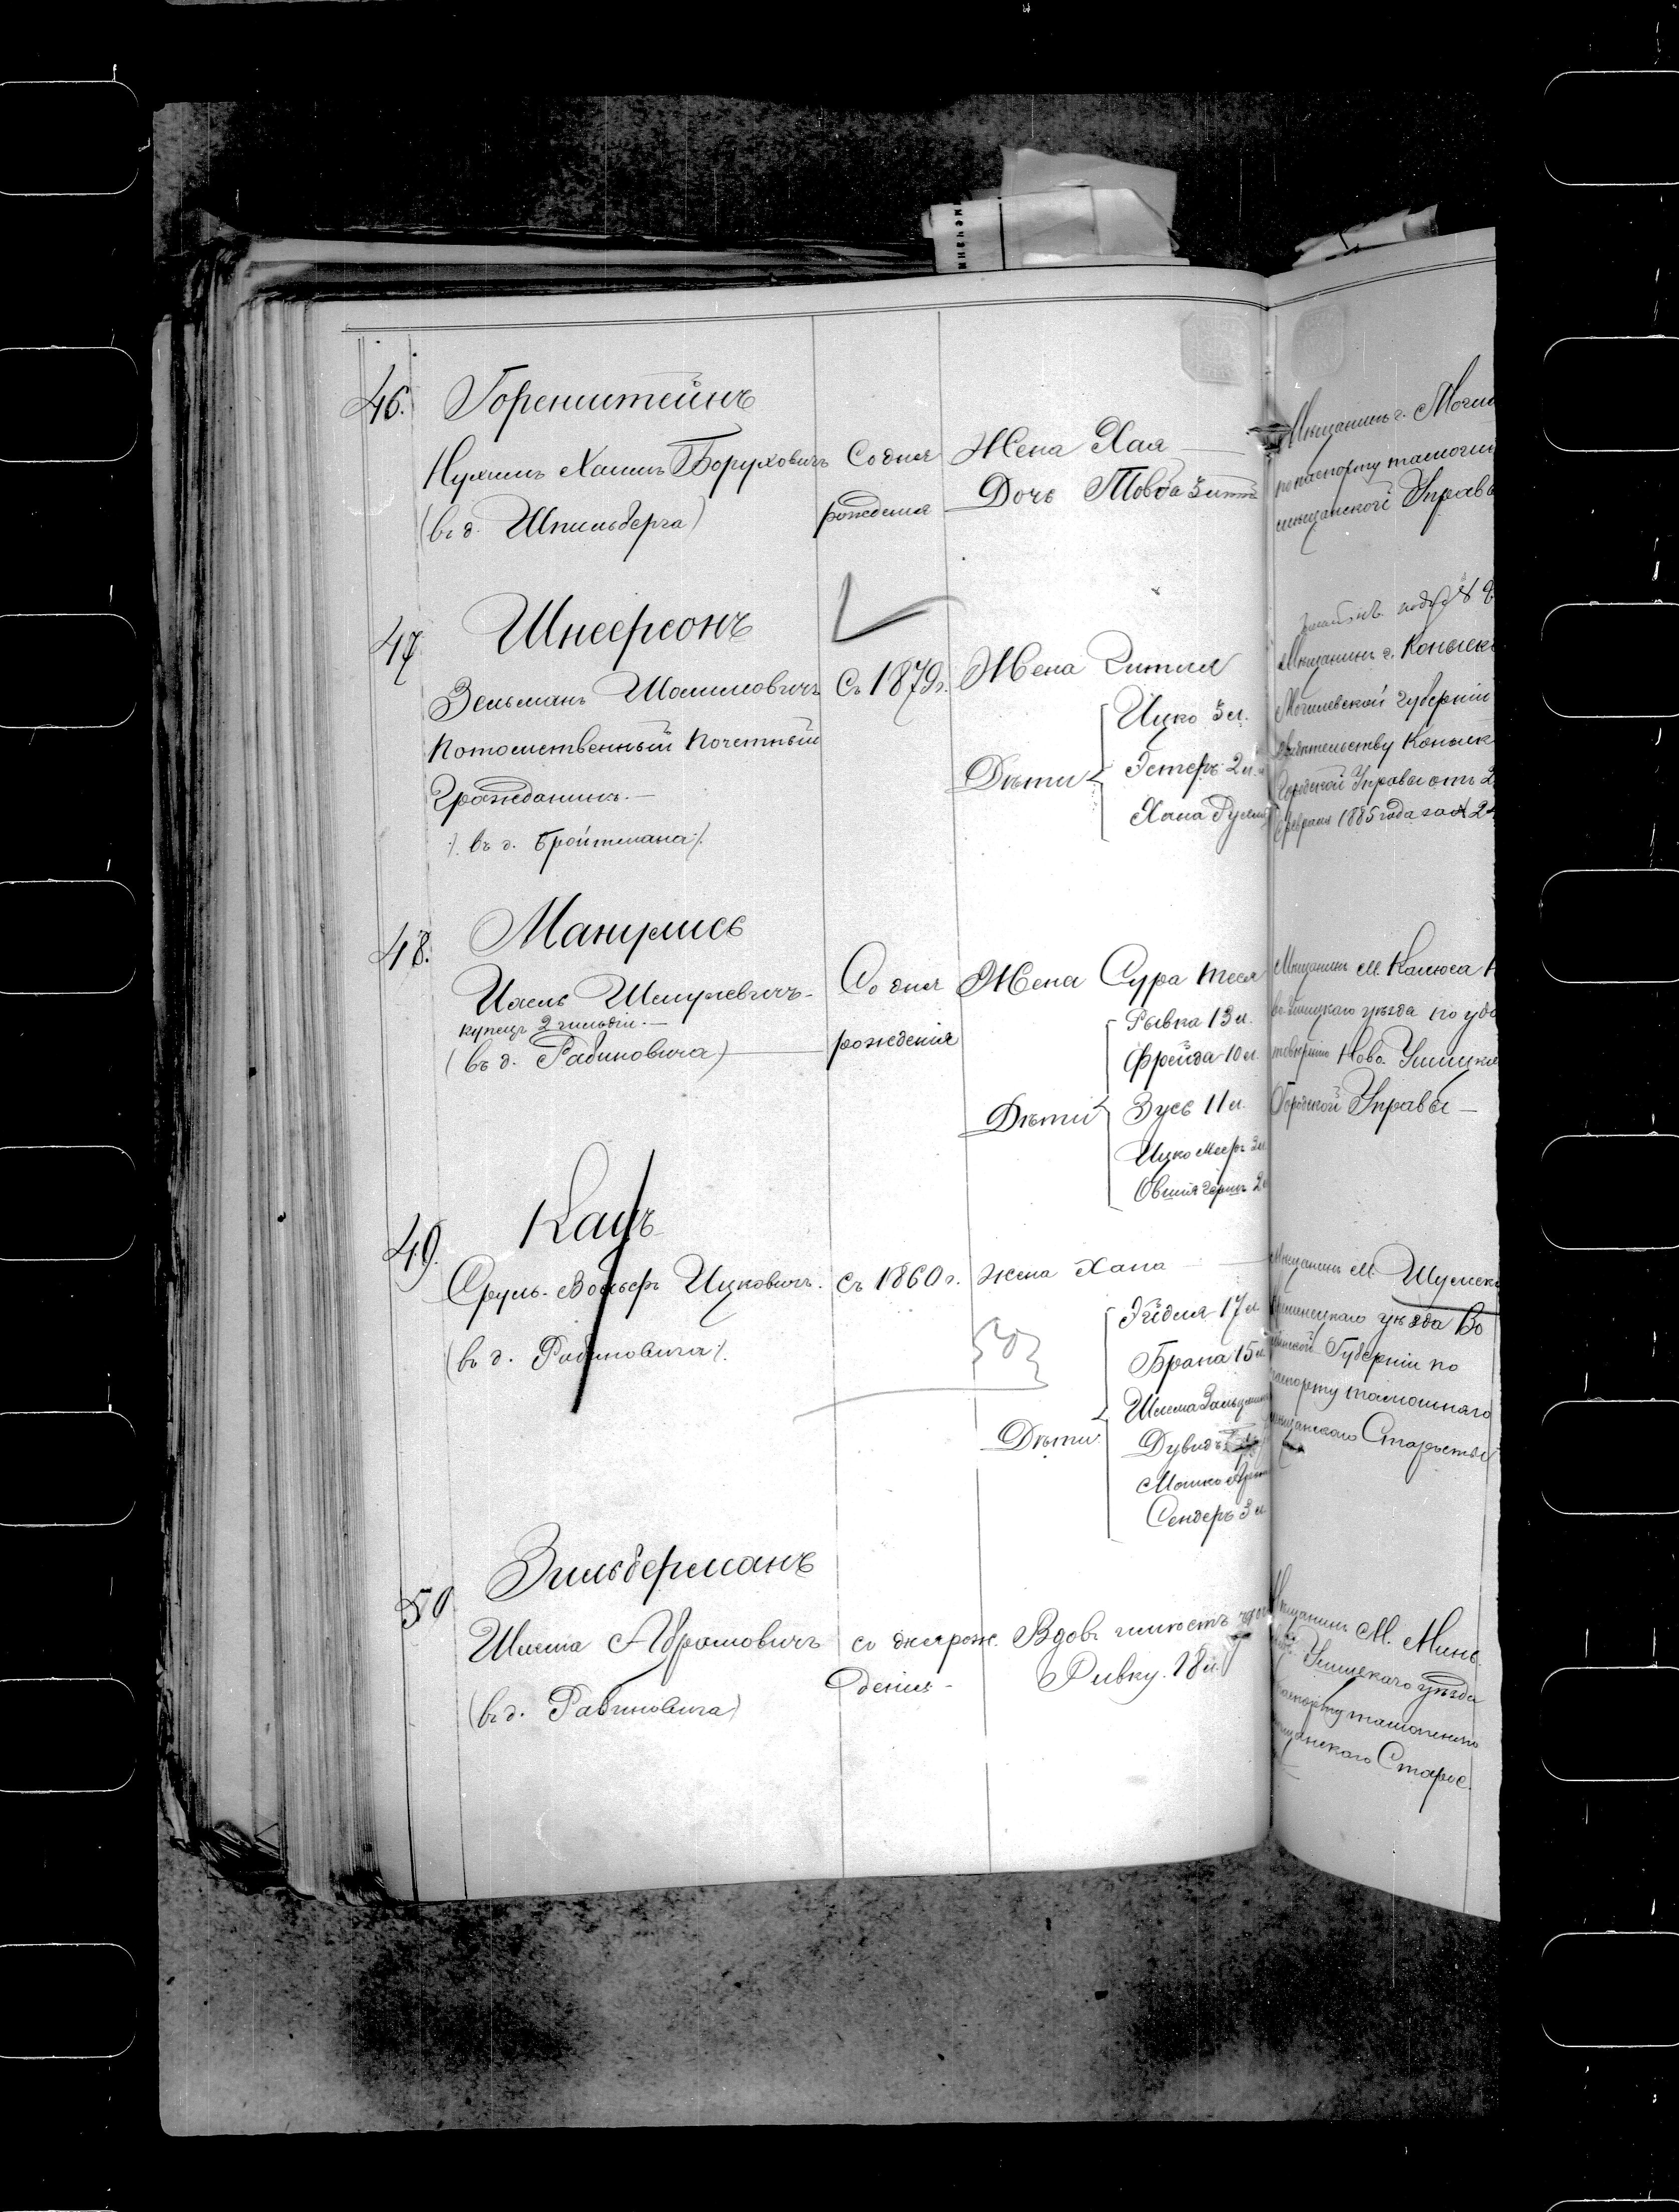 46.
Горенштейнъ
Нухимъ Хаимъ Боруховичъ
(въ д. Шпильберга)
Со дня
рожденія
Жена Хая
Дочь Товба Зитт
Мѣщанинъ г. Могил
по паспорту тамошн
мѣщанской Управы
47
Шнеерсонъ
Зельманъ Шоломовичъ
Потомственный Почетный
Гражданинъ.
/. въ д. Бройтмана /.
Съ 1879 г.
Жена Гитля
Дѣти
Ицко 5 л.
Эстеръ 2 л.
Хана
Мѣщанинъ г. Копыск
Могилевской губерніи
свидѣтельству Копыск
Городской Управы отъ 2
февраля 1885 года за № 24
48.
Манулисъ
Шмулевичъ
купецъ 2 гильдіи.
(въ д. Рабиновича)
Со дня
рожденія
Жена Сура Теся
Дѣти
Рывка 13 л.
Фрейда 10 л.
Зусь 11 л.
Ицко Мееръ 3 л.
Овшія Гершъ 2
Мѣщанинъ м. Калюса
Ушицкаго уѣзда по удо
стовѣренію Ново Ушицкой
Городской Управы
49.
Кацъ
Сруль-Вольфъ Ицковичъ.
(въ д. Рабиновича /.
съ 1860 г.
Жена Хана
Дѣти
Эйдля 17 л.
Брана 15 л.
Шлема Зальцман
Дувидъ
Мошко
Сендеръ 3 л.
Мѣщанинъ м. Шумска
Кременецкаго уѣзда Во
лынской Губерніи по
паспорту тамошняго
мѣщанскаго Старосты
50
Зильберманъ
Шлема Абрамовичъ
(въ д. Рабиновича)
со дня рож
денія
Вдовъ имѣетъ дочь
Ривку. 18 л.
Мѣщанинъ М. Минь
Ушицкаго уѣзда
паспорту тамошняго
мѣщанскаго Старос.